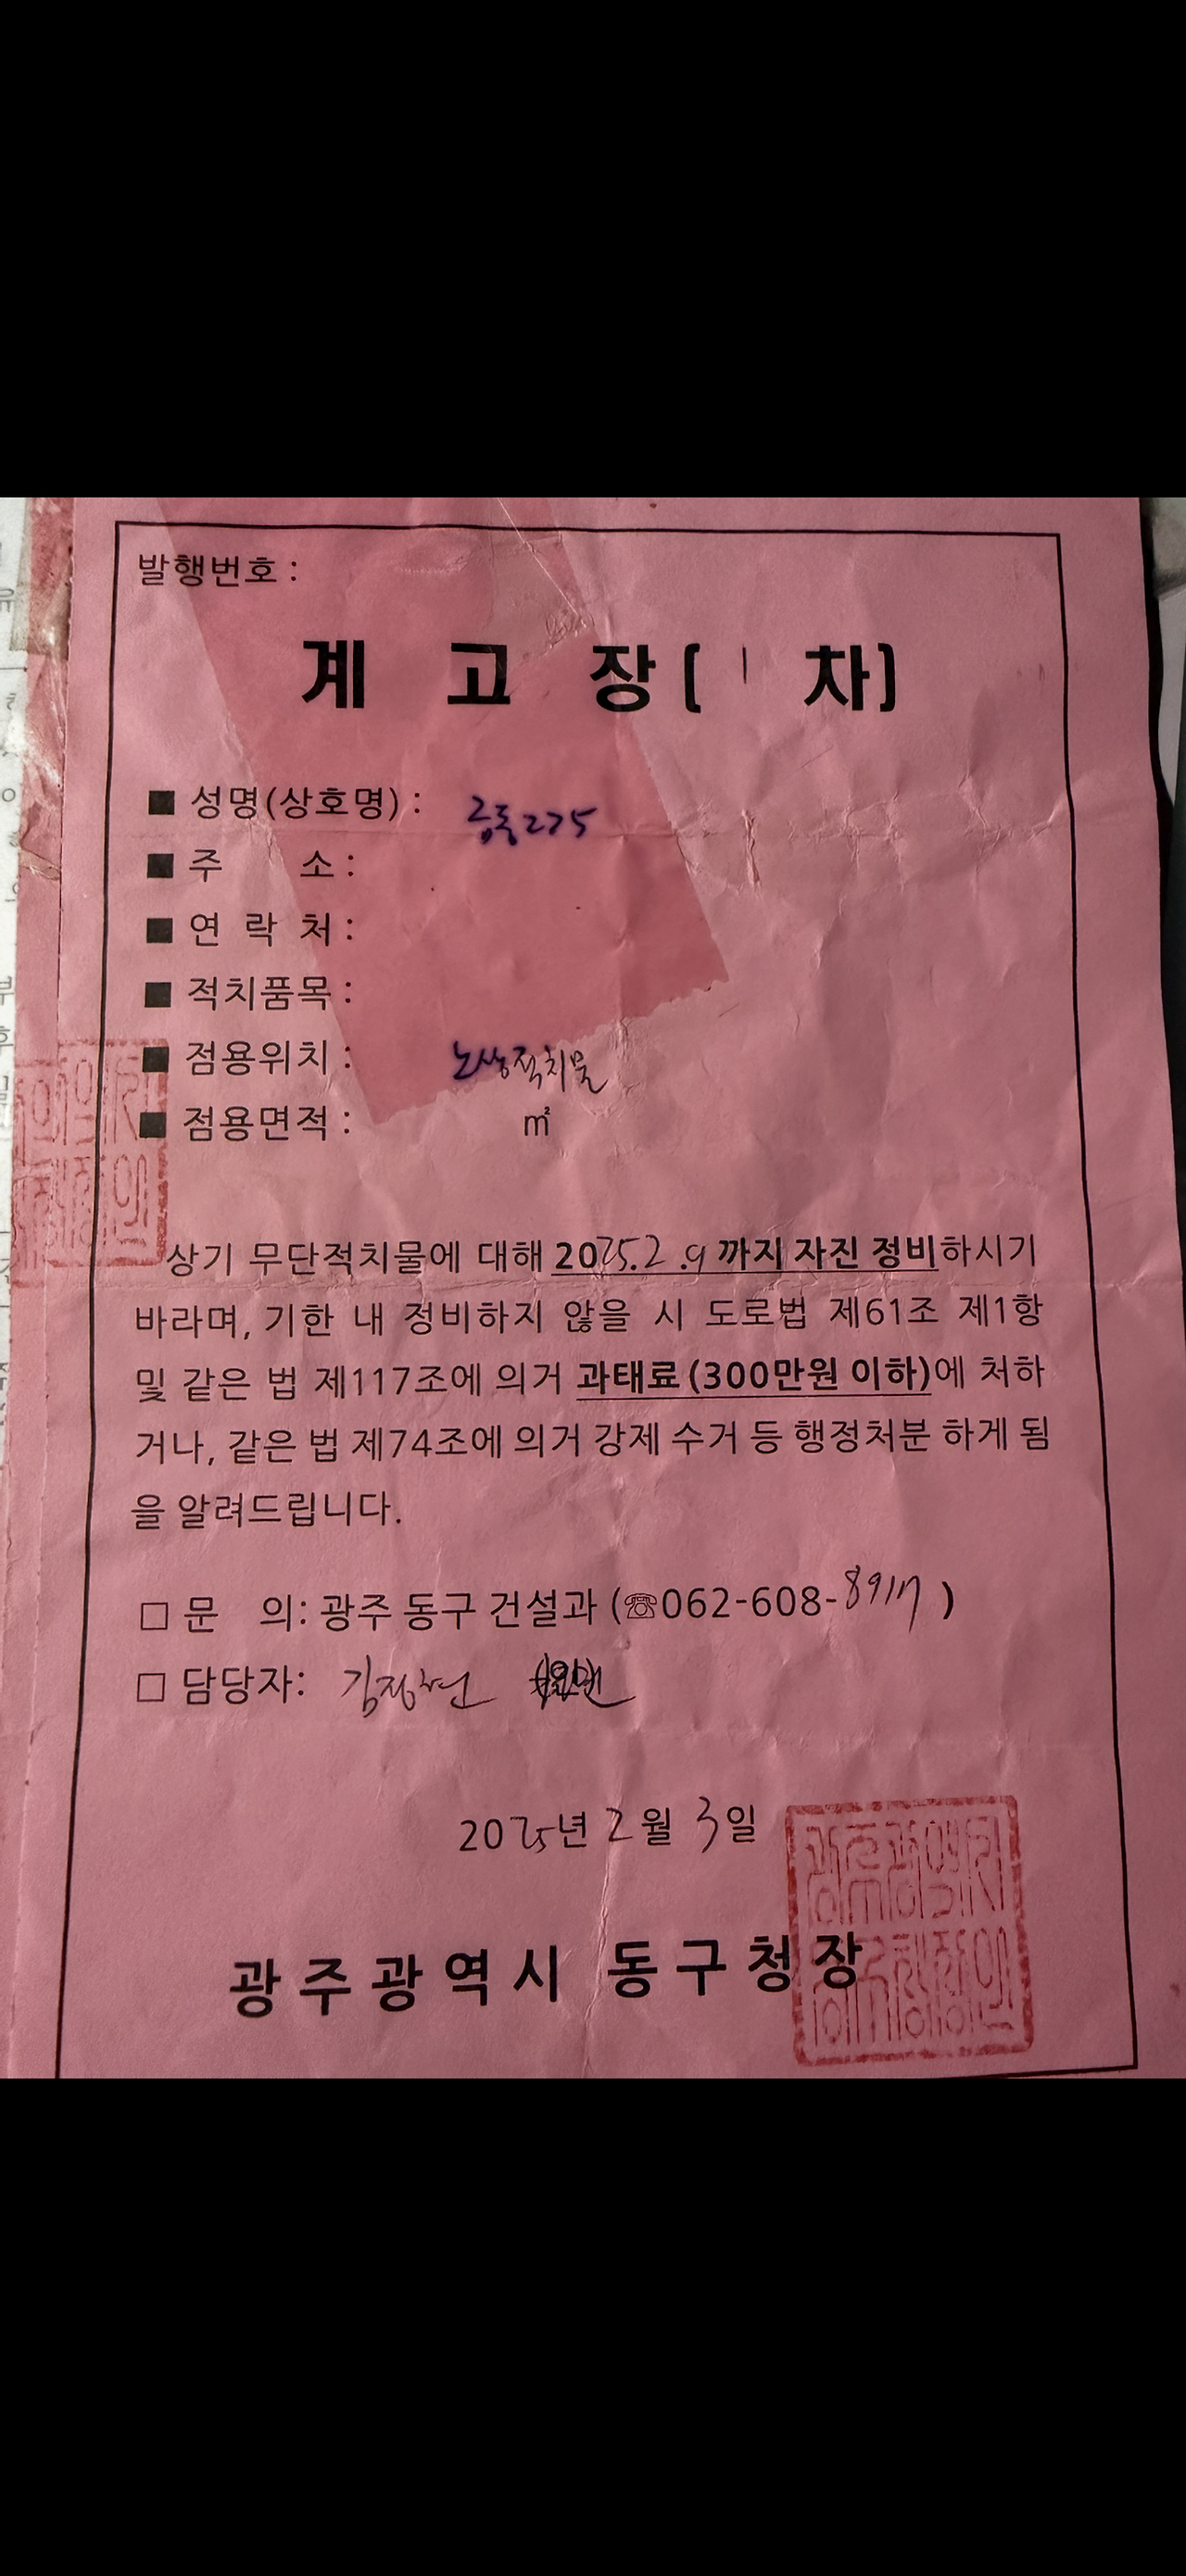 발행번호 :
계 고 장 [ 1 차]
■ 성명(상호명) : 금동225
■ 주 소 :
■ 연 락 처 :
■ 적치품목 :
■ 점용위치 : 노상적치물
■ 점용면적 : ㎡
상기 무단적치물에 대해 2025.2.9 까지 자진 정비하시기
바라며, 기한 내 정비하지 않을 시 도로법 제61조 제1항
및 같은 법 제117조에 의거 과태료(300만원 이하)에 처하
거나, 같은 법 제74조에 의거 강제 수거 등 행정처분 하게 됨
을 알려드립니다.
□ 문 의: 광주 동구 건설과 (☏062-608-8917 )
□ 담당자:
2025년 2월 3일
광주광역시 동구청장